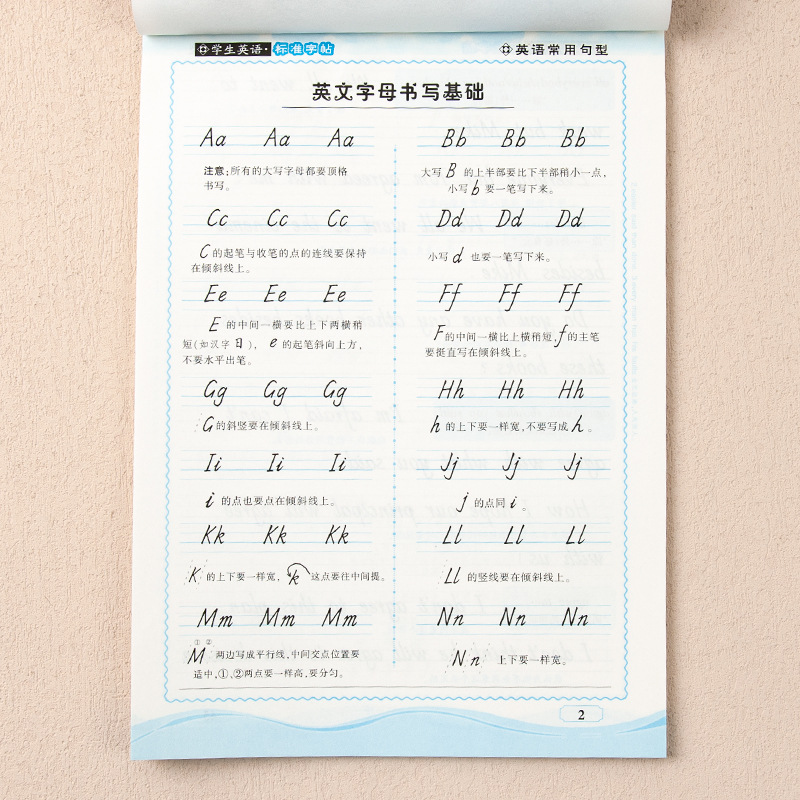 学生英语·标准字帖
英语常用句型
英文字母书写基础
Aa Aa Aa
注意:所有的大写字母都要顶格
书写。
Cc Cc Cc
C的起笔与收笔的点的连线要保持
在倾斜线上。
Ee Ee Ee
E 的中间一横要比上下两横稍
短(如汉字日), e 的起笔斜向上方,
不要水平出笔。
Gg Gg Gg
G的斜竖要在倾斜线上。
Ii Ii Ii
i 的点也要点在倾斜线上。
Kk Kk Kk
K 的上下要一样宽, k 这点要往中间提。
Mm Mm Mm
① ②
M 两边写成平行线,中间交点位置要
适中,①、②两点要一样高,要分匀。
Bb Bb Bb
大写 B 的上半部要比下半部稍小一点,
小写 b 要一笔写下来。
Dd Dd Dd
小写 d 也要一笔写下来。
Ff Ff Ff
F的中间一横比上横稍短,f的主笔
要挺直写在倾斜线上。
Hh Hh Hh
h 的上下要一样宽,不要写成 h 。
Jj Jj Jj
j 的点同 i 。
Ll Ll Ll
Ll 的竖线要在倾斜线上。
Nn Nn Nn
Nn 上下要一样宽。
2